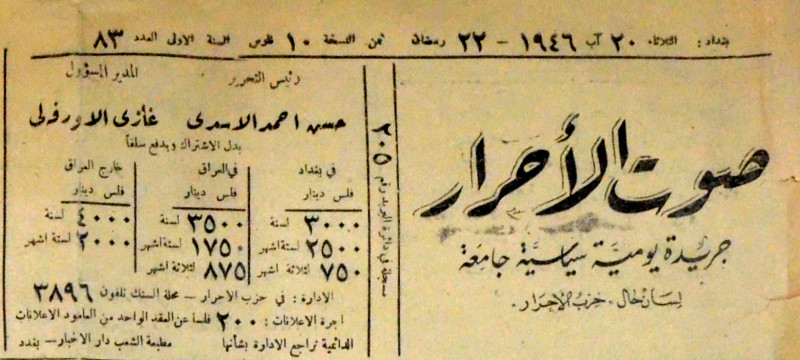 بغداد: الثلاثاء ٢٠ آب ١٩٤٦ – ٢٢ رمضان ثمن النسخة ١٠ فلوس السنة الاولى العدد ٨٣
صوت الأحرار
جريدة يومية سياسية جامعة
لسان حال. حزب الأحرار.
مسجلة في دائرة البريد رقم ٢٠٥
رئيس التحرير المدير المسؤول
حسن احمد الاسدي غازي الاورفه لي
بدل الاشتراك ويدفع سلفاً
في بغداد في العراق خارج العراق
فلس دينار فلس دينار فلس دينار
٣٠٠٠ لسنة ٣٥٠٠ لسنة ٤٠٠٠ لسنة
٢٥٠٠ لستة اشهر ١٧٥٠ لستة اشهر ٢٠٠٠ لستة اشهر
٧٥٠ لثلاثة اشهر ٨٧٥ لثلاثة اشهر
الادارة: في حزب الاحرار – محلة السنك تلفون ٣٨٩٦
اجرة الاعلانات: ٢٠٠ فلسا عن العقد الواحد من العامود الاعلانات
الدائمية تراجع الادارة بشأنها مطبعة الشعب دار الاخبار – بغدد